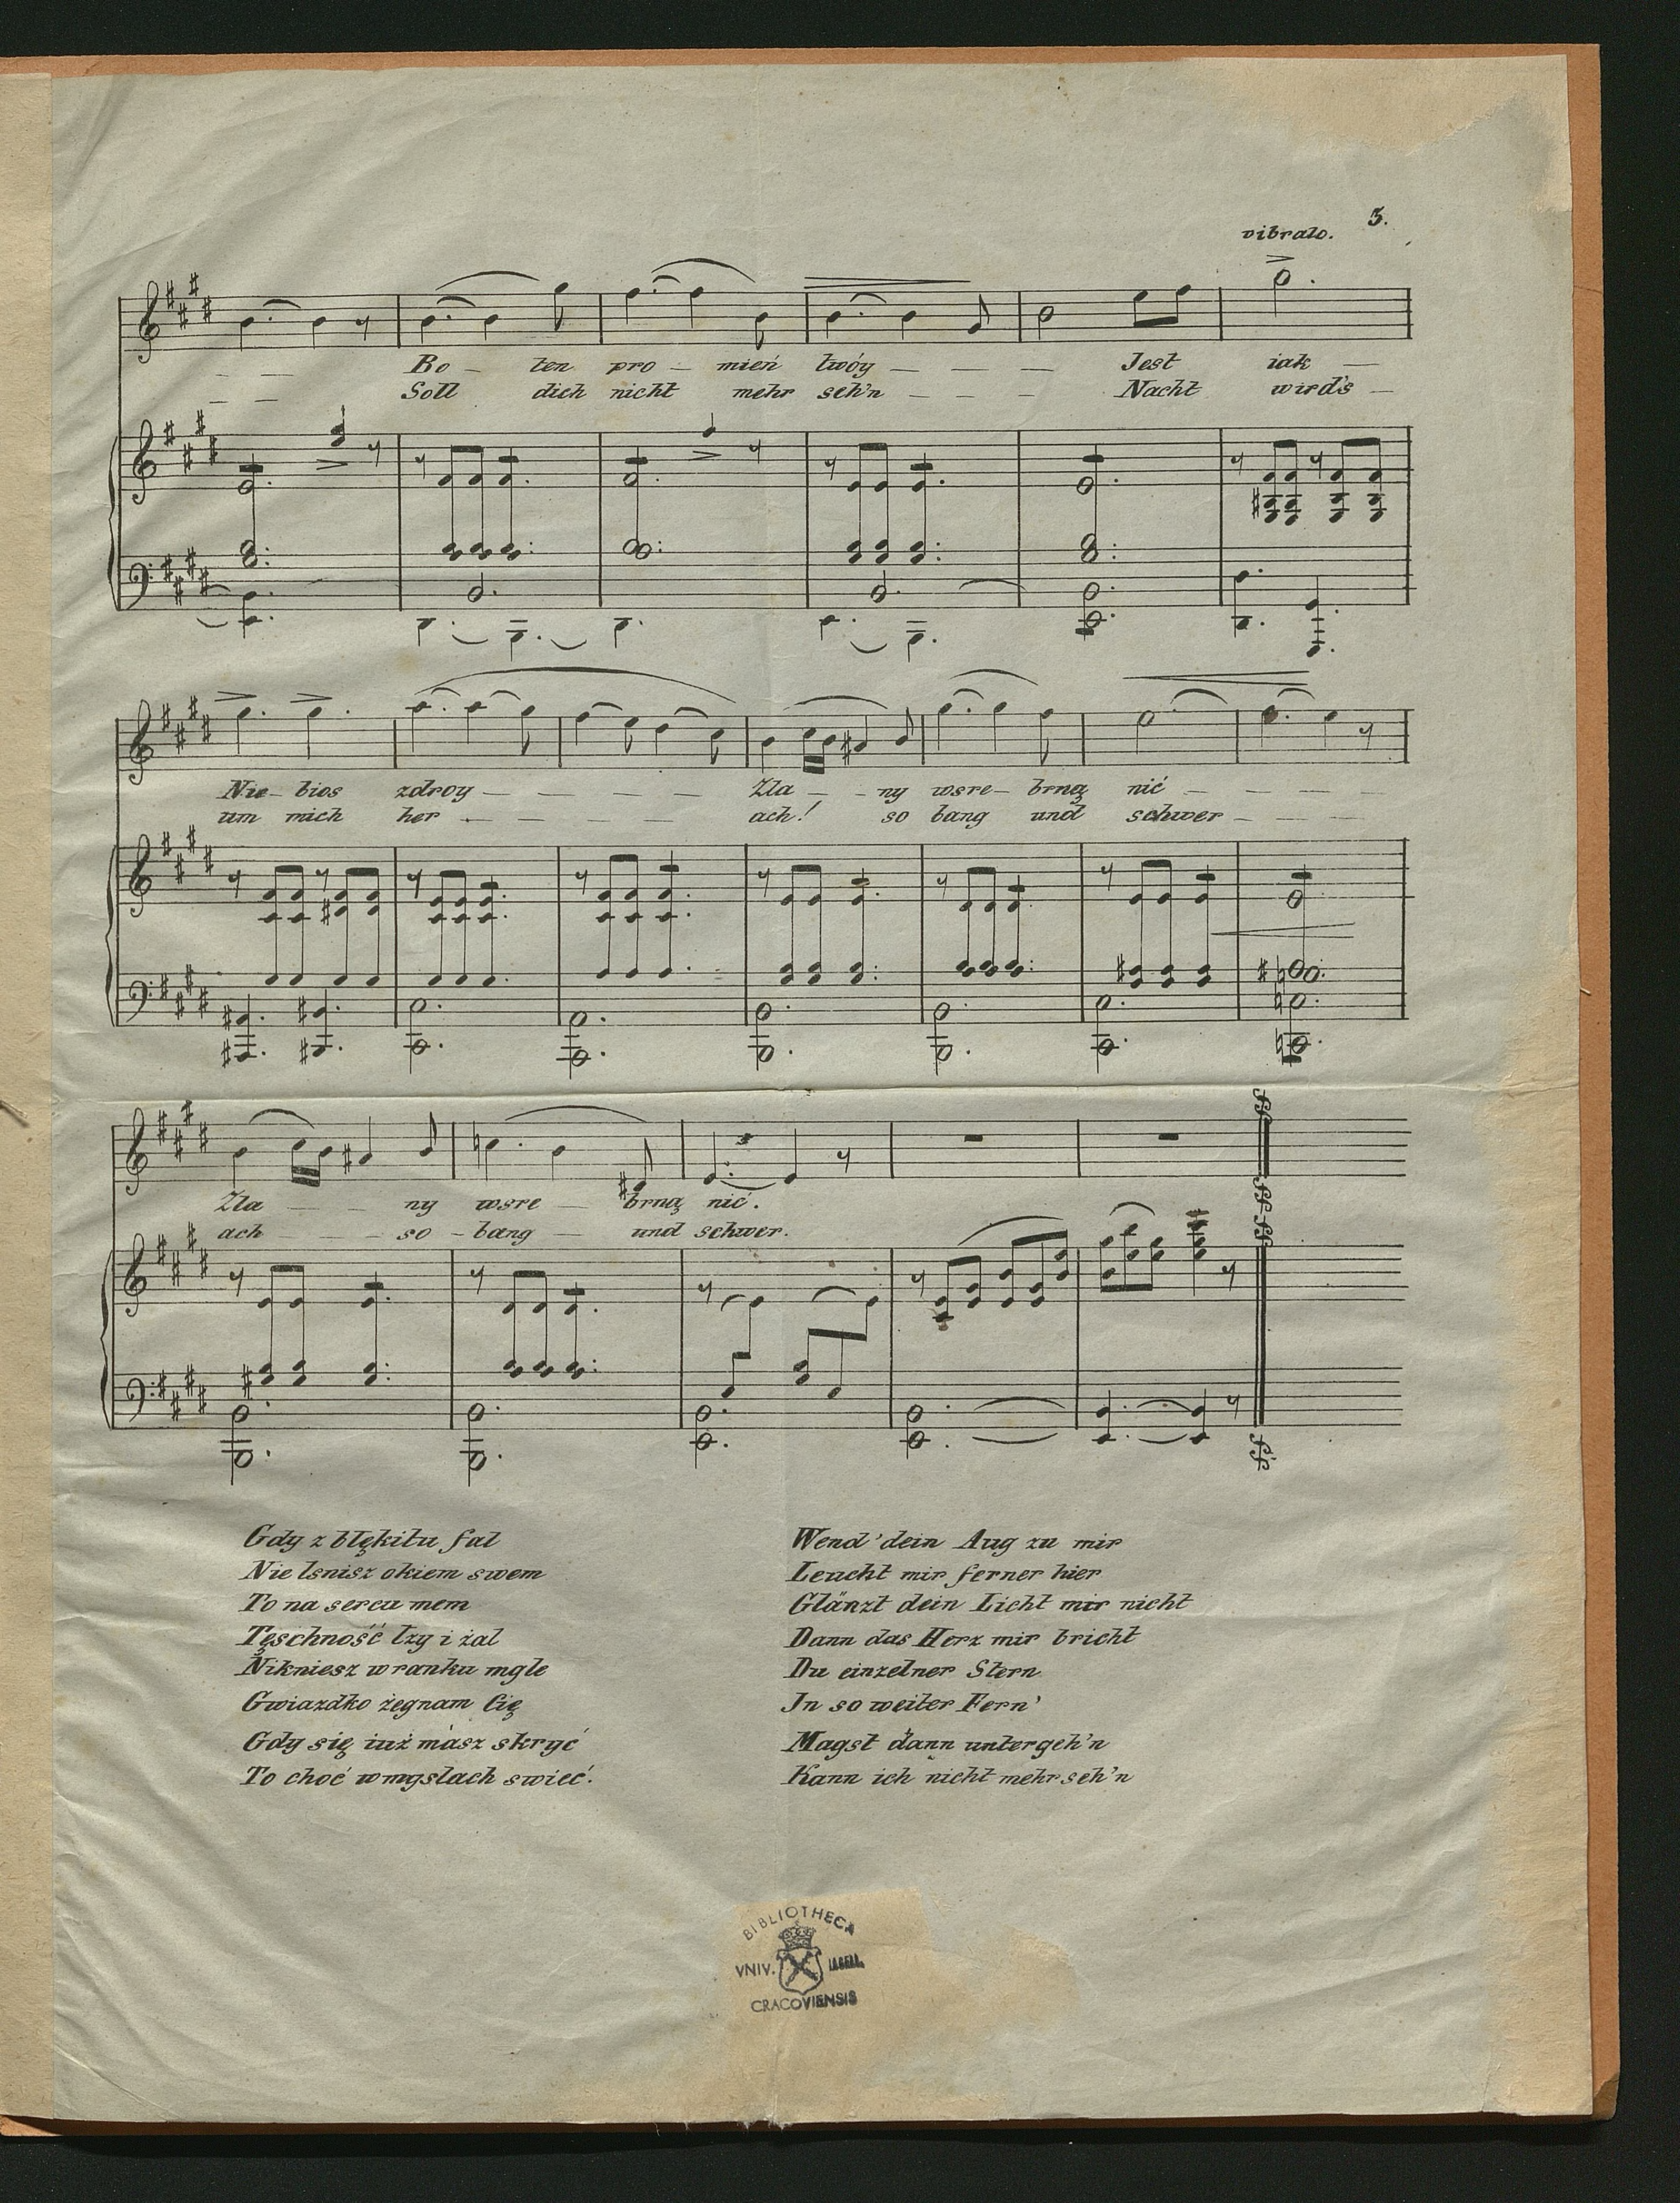 5.
vibrato.
Bo – ten pro – mień twóy – – – Jest iak –
Soll dich nicht mehr seh'n – – – Nacht wird's –
Nie – bios zdroy – – – – – Zla – – ny wsre – brną nić – – – –
um mich her – – – – – ach! so bang und schwer – – – –
Zla – – ny wsre – brną nić.
ach – – – so – bang – und schwer.
Gdy z błękitu fal
Nie lsnisz okiem swem
To na sercu mem
Tęschność łzy i żal
Nikniesz w ranku mgle
Gwiazdko żegnam Cię
Gdy się iuż masz skryć
To choć w myslach swieć.
Wend' dein Aug zu mir
Leucht mir ferner hier
Glänzt dein Licht mir nicht
Dann das Herz mir bricht
Du einzelner Stern
In so weiter Fern'
Magst dann untergeh'n
Kann ich nicht mehr seh'n
BIBLIOTHECA
VNIV. IAGELL.
CRACOVIENSIS